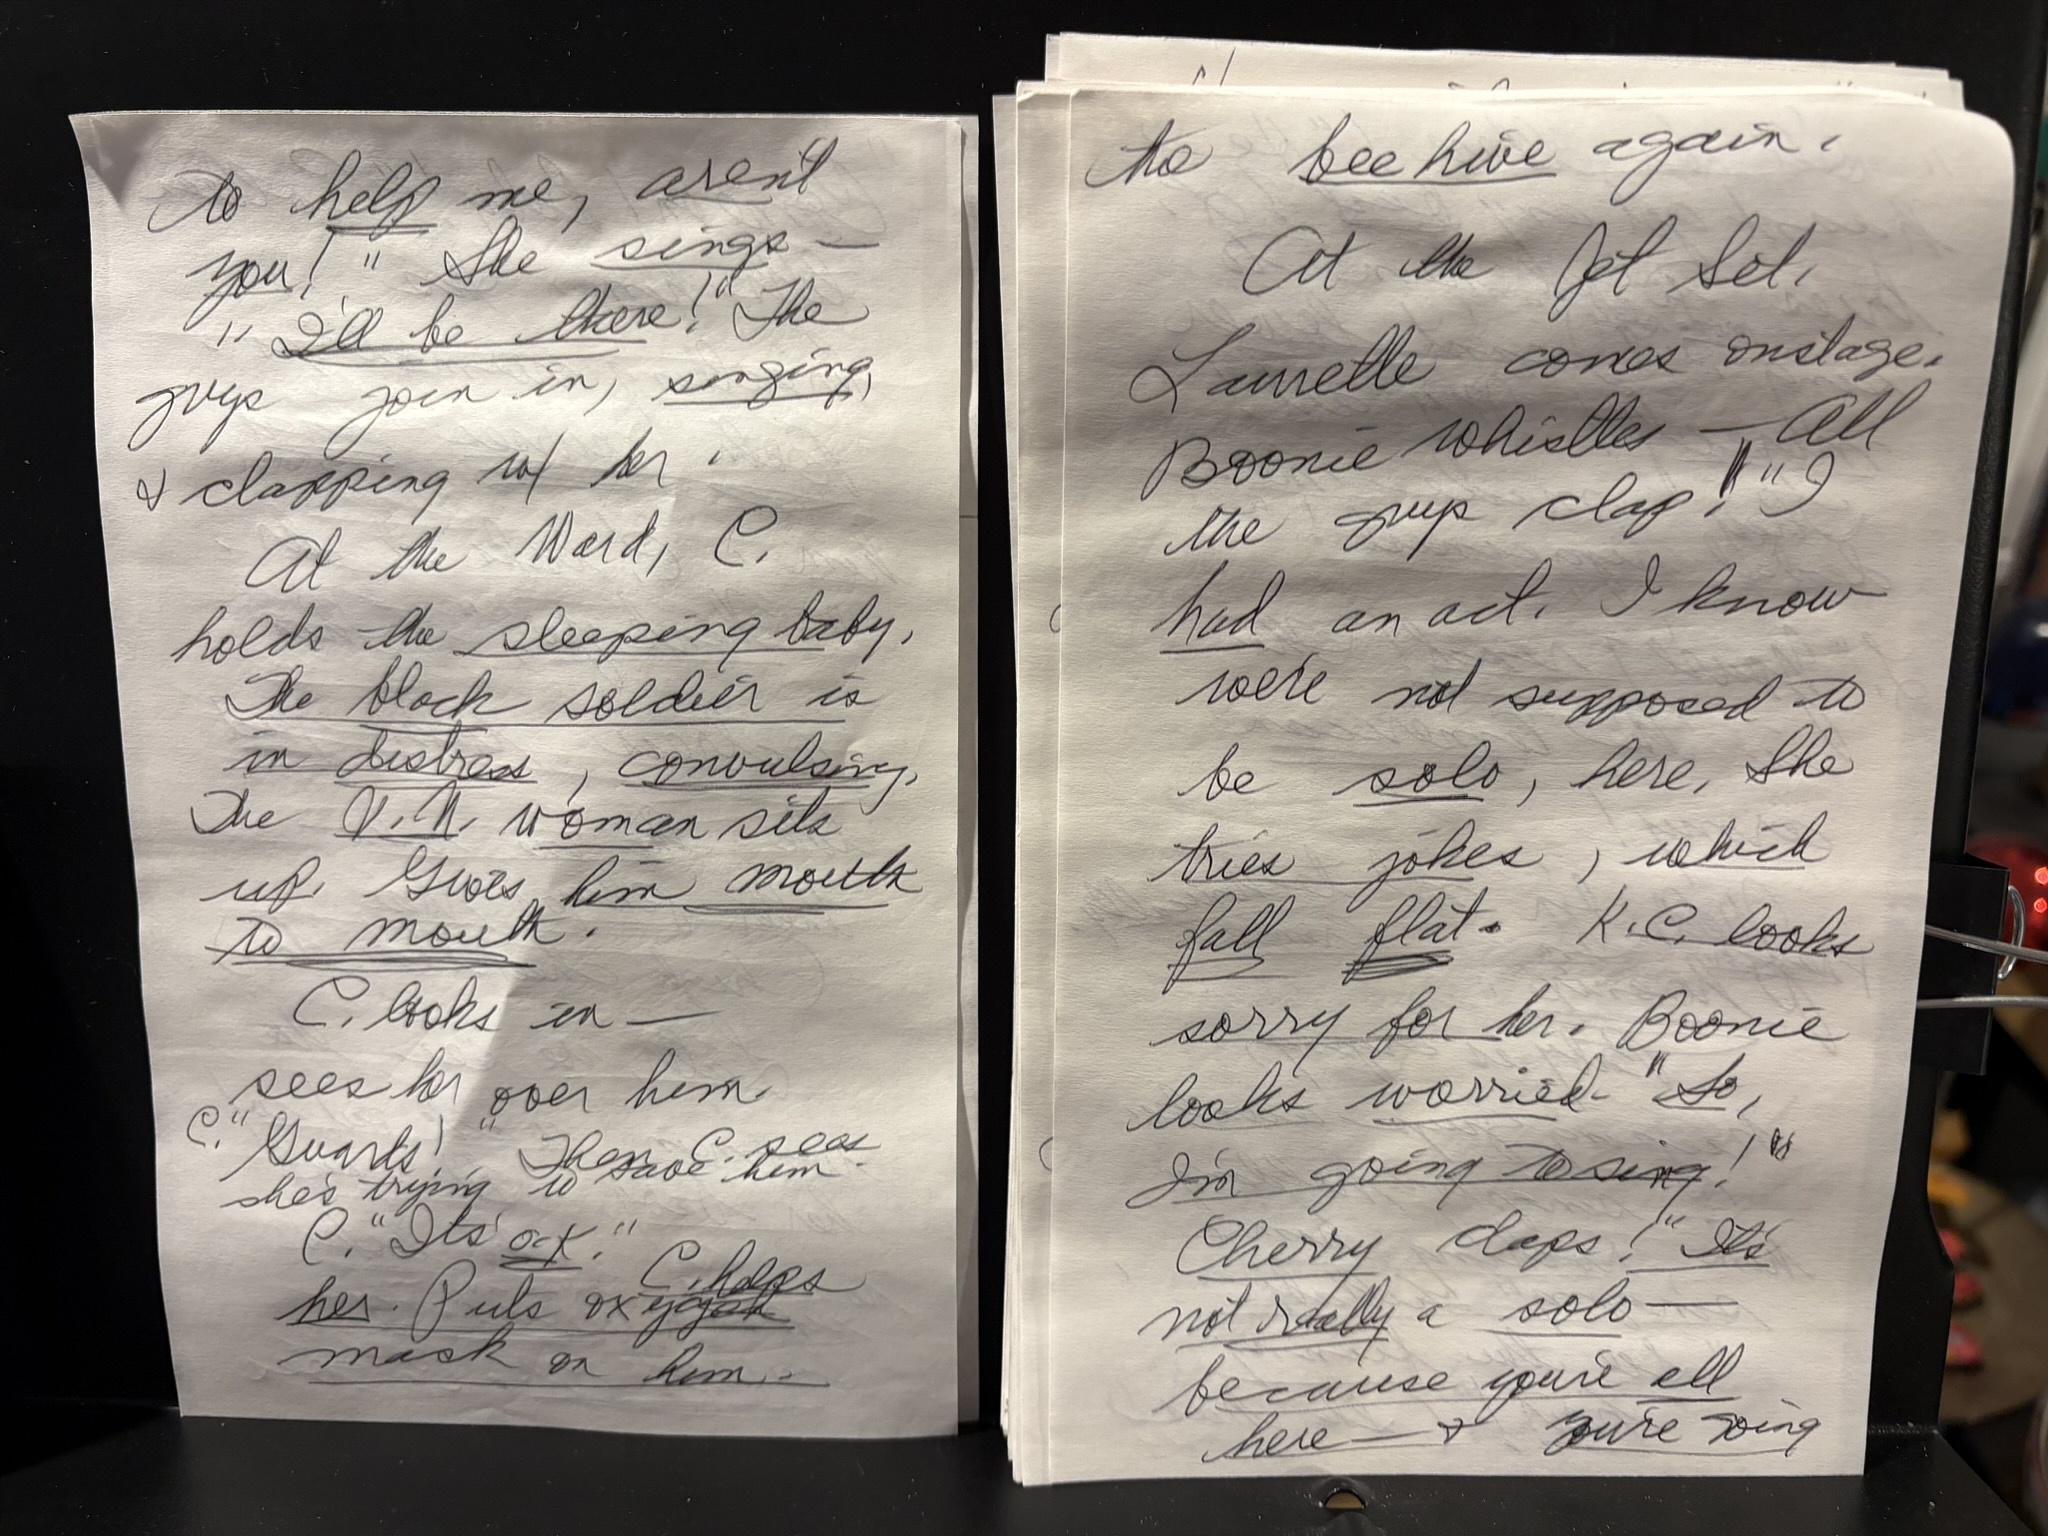 to help me, aren't
you! " She sings —
" I'll be there!" The
guys join in, singing,
& clapping w/ her.
At the Ward, C.
holds the sleeping baby.
The black soldier is
in distress, convulsing.
The V.N. woman sits
up. Gives him mouth
to mouth.
C. looks in —
sees her over him.
C. "Guards!" Then C. sees
she's trying to save him.
C. "It's o-k." C. helps
her. Puts oxygen
mask on him.
to beehive again.
At the Jet Set,
Laurette comes onstage.
Boonie whistles — All
the guys clap! " I
had an act. I know
we're not supposed to
be solo, here. She
tries jokes, which
fall flat. K.C. looks
sorry for her. Boonie
looks worried - "So,
I'm going to sing!"
Cherry claps! "It's
not really a solo —
because you're all
here — & you're going